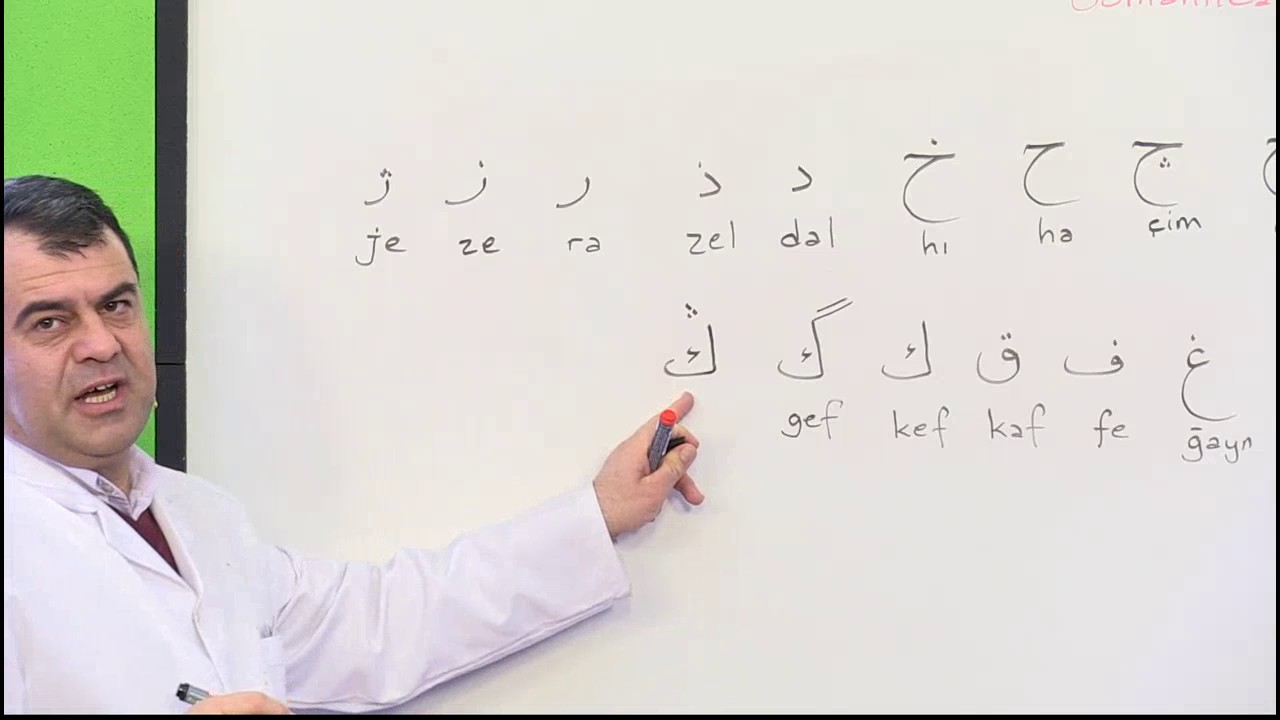 چ ح خ د ذ ر ز ژ
je ze ra zel dal hı ha çim
غ ف ق ك گ ڭ
gef kef kaf fe ḡayn